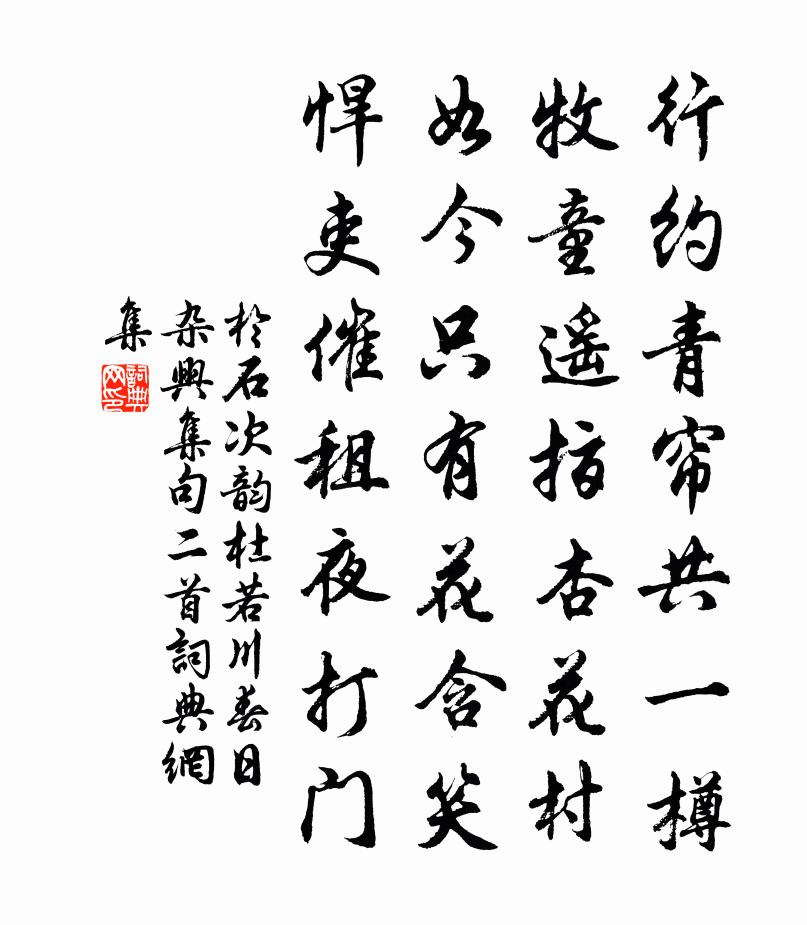 行约青帘共一樽
牧童遥指杏花村
如今只有花含笑
悍吏催租夜打门
於石次韵杜若川春日
杂興集句二首詞典網
集
詞典网印